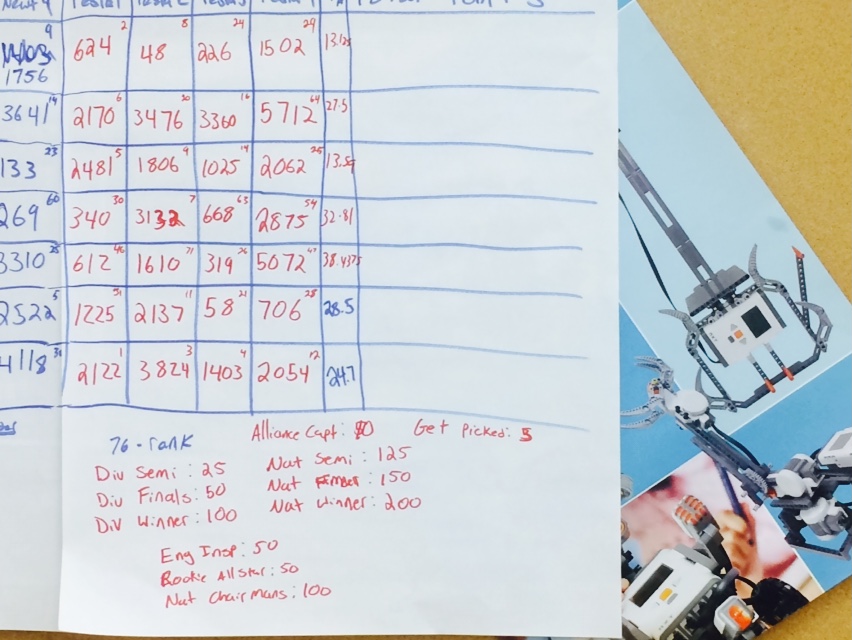 624 2 48 8 226 24 1502 29
1756
3641 14 2170 6 3476 30 3360 16 5712 64 27.5
133 23 2481 5 1806 9 1025 14 2062 25 13.5
269 60 340 30 3132 7 668 63 2875 54 32.81
3310 25 612 46 1610 71 319 26 5072 47 38.4375
2522 5 1225 31 2137 11 58 21 706 28 28.5
4118 31 2122 1 3824 3 1403 4 2054 12 24.7
76-rank Alliance Capt: 10 Get Picked: 5
Div Semi: 25 Nat Semi: 125
Div Finals: 50 Nat Finals: 150
Div Winner: 100 Nat Winner: 200
Eng Insp: 50
Rookie Allstar: 50
Nat Chairmans: 100